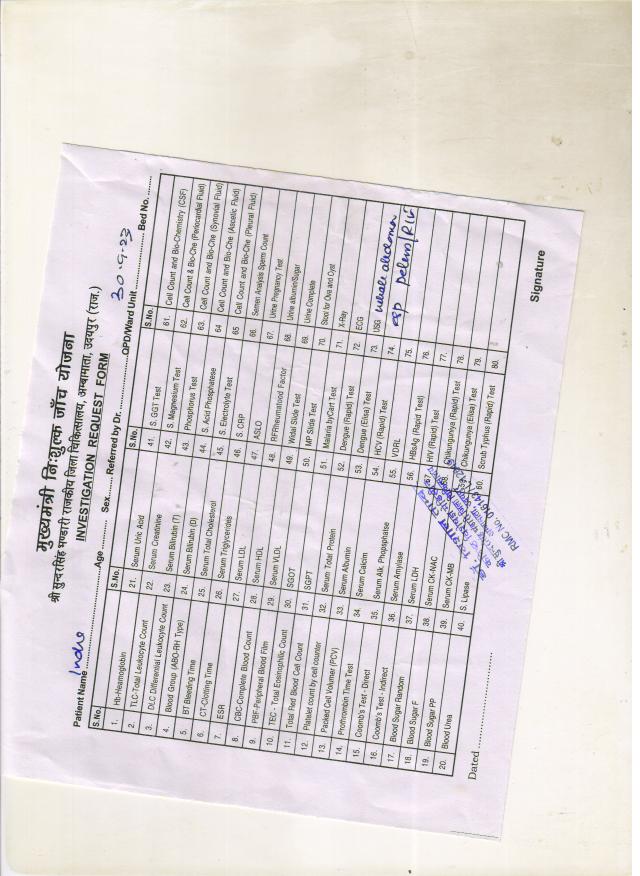 मुख्यमंत्री निःशुल्क जाँच योजना
श्री सुन्दरसिंह भण्डारी राजकीय जिला चिकित्सालय, अम्बामाता, उदयपुर (राज.)
INVESTIGATION REQUEST FORM
30.9.23
Patient Name Indra Age Sex Referred by Dr. OPD/Ward Unit Bed No.
S.No. S.No. S.No. S.No.
1. Hb-Heamoglobin 21. Serum Uric Acid 41. S. GGT Test 61. Cell Count and Bio-Chemistry (CSF)
2. TLC-Total Leukocyte Count 22. Serum Creatinine 42. S. Magnesium Test 62. Cell Count & Bio-Che (Periocardial Fluid)
3. DLC Differential Leukocyte Count 23. Serum Bilirubin (T) 43. Phosphorus Test 63. Cell Count and Bio-Che (Synovial Fluid)
4. Blood Group (ABO-RH Type) 24. Serum Bilirubin (D) 44. S. Acid Phosphatese 64 Cell Count and Bio-Che (Ascetic Fluid)
5. BT Bleeding Time 25. Serum Total Cholesterol 45. S. Electrolyte Test 65 Cell Count and Bio-Che (Pleural Fluid)
6. CT-Clotting Time 26. Serum Triglycerides 46. S. CRP 66. Semen Analysis Sperms Count
7. ESR 27. Serum LDL 47. ASLO 67. Urine Pregnancy Test
8. CBC-Complete Blood Count 28. Serum HDL 48. RFRheumatoid Factor 68. Urine albumin/Sugar
9. PBF-Peripheral Blood Film 29. Serum VLDL 49. Widal Slide Test 69. Urine Complete
10. TEC - Total Eosinophilic Count 30. SGOT 50. MP Slide Test 70. Stool for Ova and Cyst
11. Total Red Blood Cell Count 31. SGPT 51. Malaria by/Cart Test 71. X-Ray
12. Platelet count by cell counter 32. Serum Total Protein 52. Dengue (Rapid) Test 72. ECG
13. Packed Cell Volumer (PCV) 33. Serum Albumin 53. Dengue (Elisa) Test 73. USG whole abdomen
14. Prothrombin Time Test 34. Serum Calcim 54. HCV (Rapid) Test 74. esp pelvis/RIF
15. Coomb's Test - Direct 35. Serum Alk. Phopsphatse 55. VDRL 75.
16. Coomb's Test - Indirect 36. Serum Amylase 56. HBsAg (Rapid) Test 76.
17. Blood Sugar Random 37. Serum LDH 57. HIV (Rapid) Test 77.
18. Blood Sugar F 38. Serum CK-NAC 58. Chikunguniya (Rapid) Test 78.
19. Blood Sugar PP 39. Serum CK-MB 59. Chikungunya (Elisa) Test 79.
20. Blood Urea 40. S. Lipase 60. Scrub Typhus (Rapid) Test 80.
RMC NO. 06143
Dated Signature